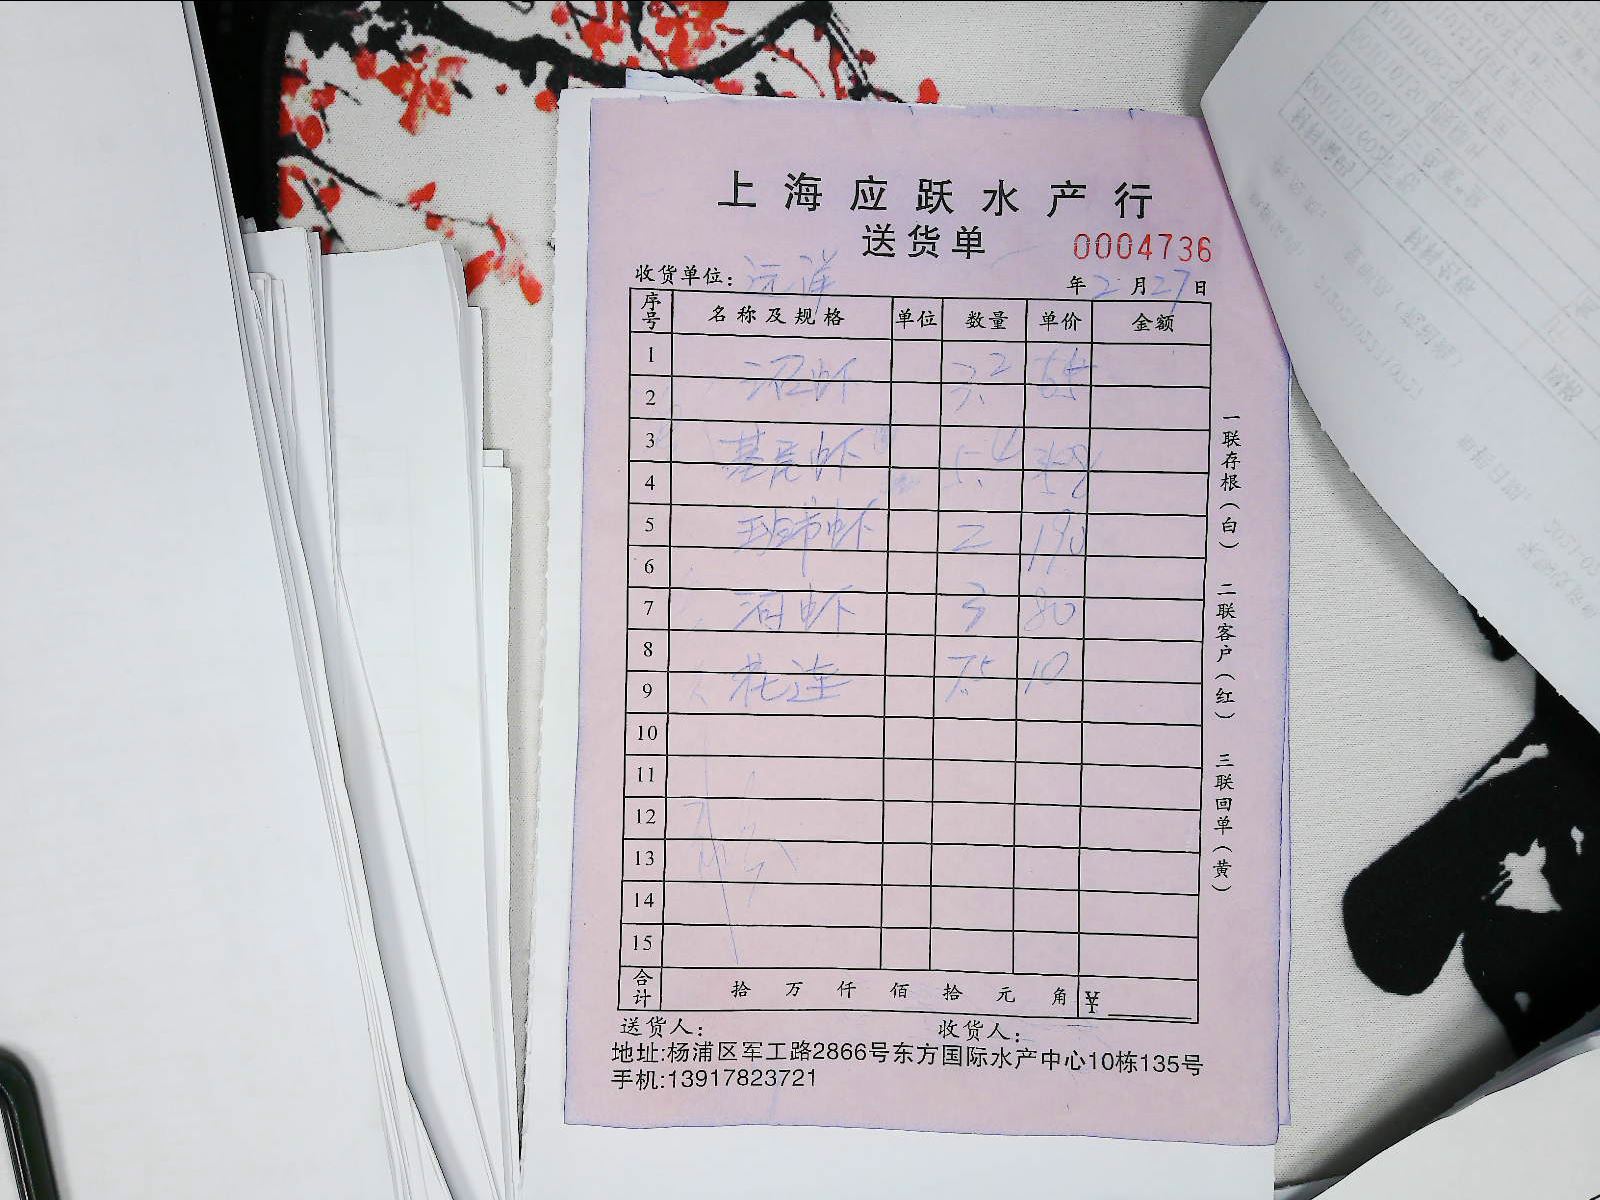 上海应跃水产行
送货单 0004736
收货单位：远洋 年2月27日
序号 名称及规格 单位 数量 单价 金额
1
沼虾 3.2 55
2
3
基尾虾 5.4 58
4
5
斑节虾 2 190
6
7 河虾 3 80
8
花连 7.5 10
9
10
11
12
13
14
15
合计 拾 万 仟 佰 拾 元 角 ¥
送货人： 收货人：
地址:杨浦区军工路2866号东方国际水产中心10栋135号
手机:13917823721
一联存根（白） 二联客户（红） 三联回单（黄）